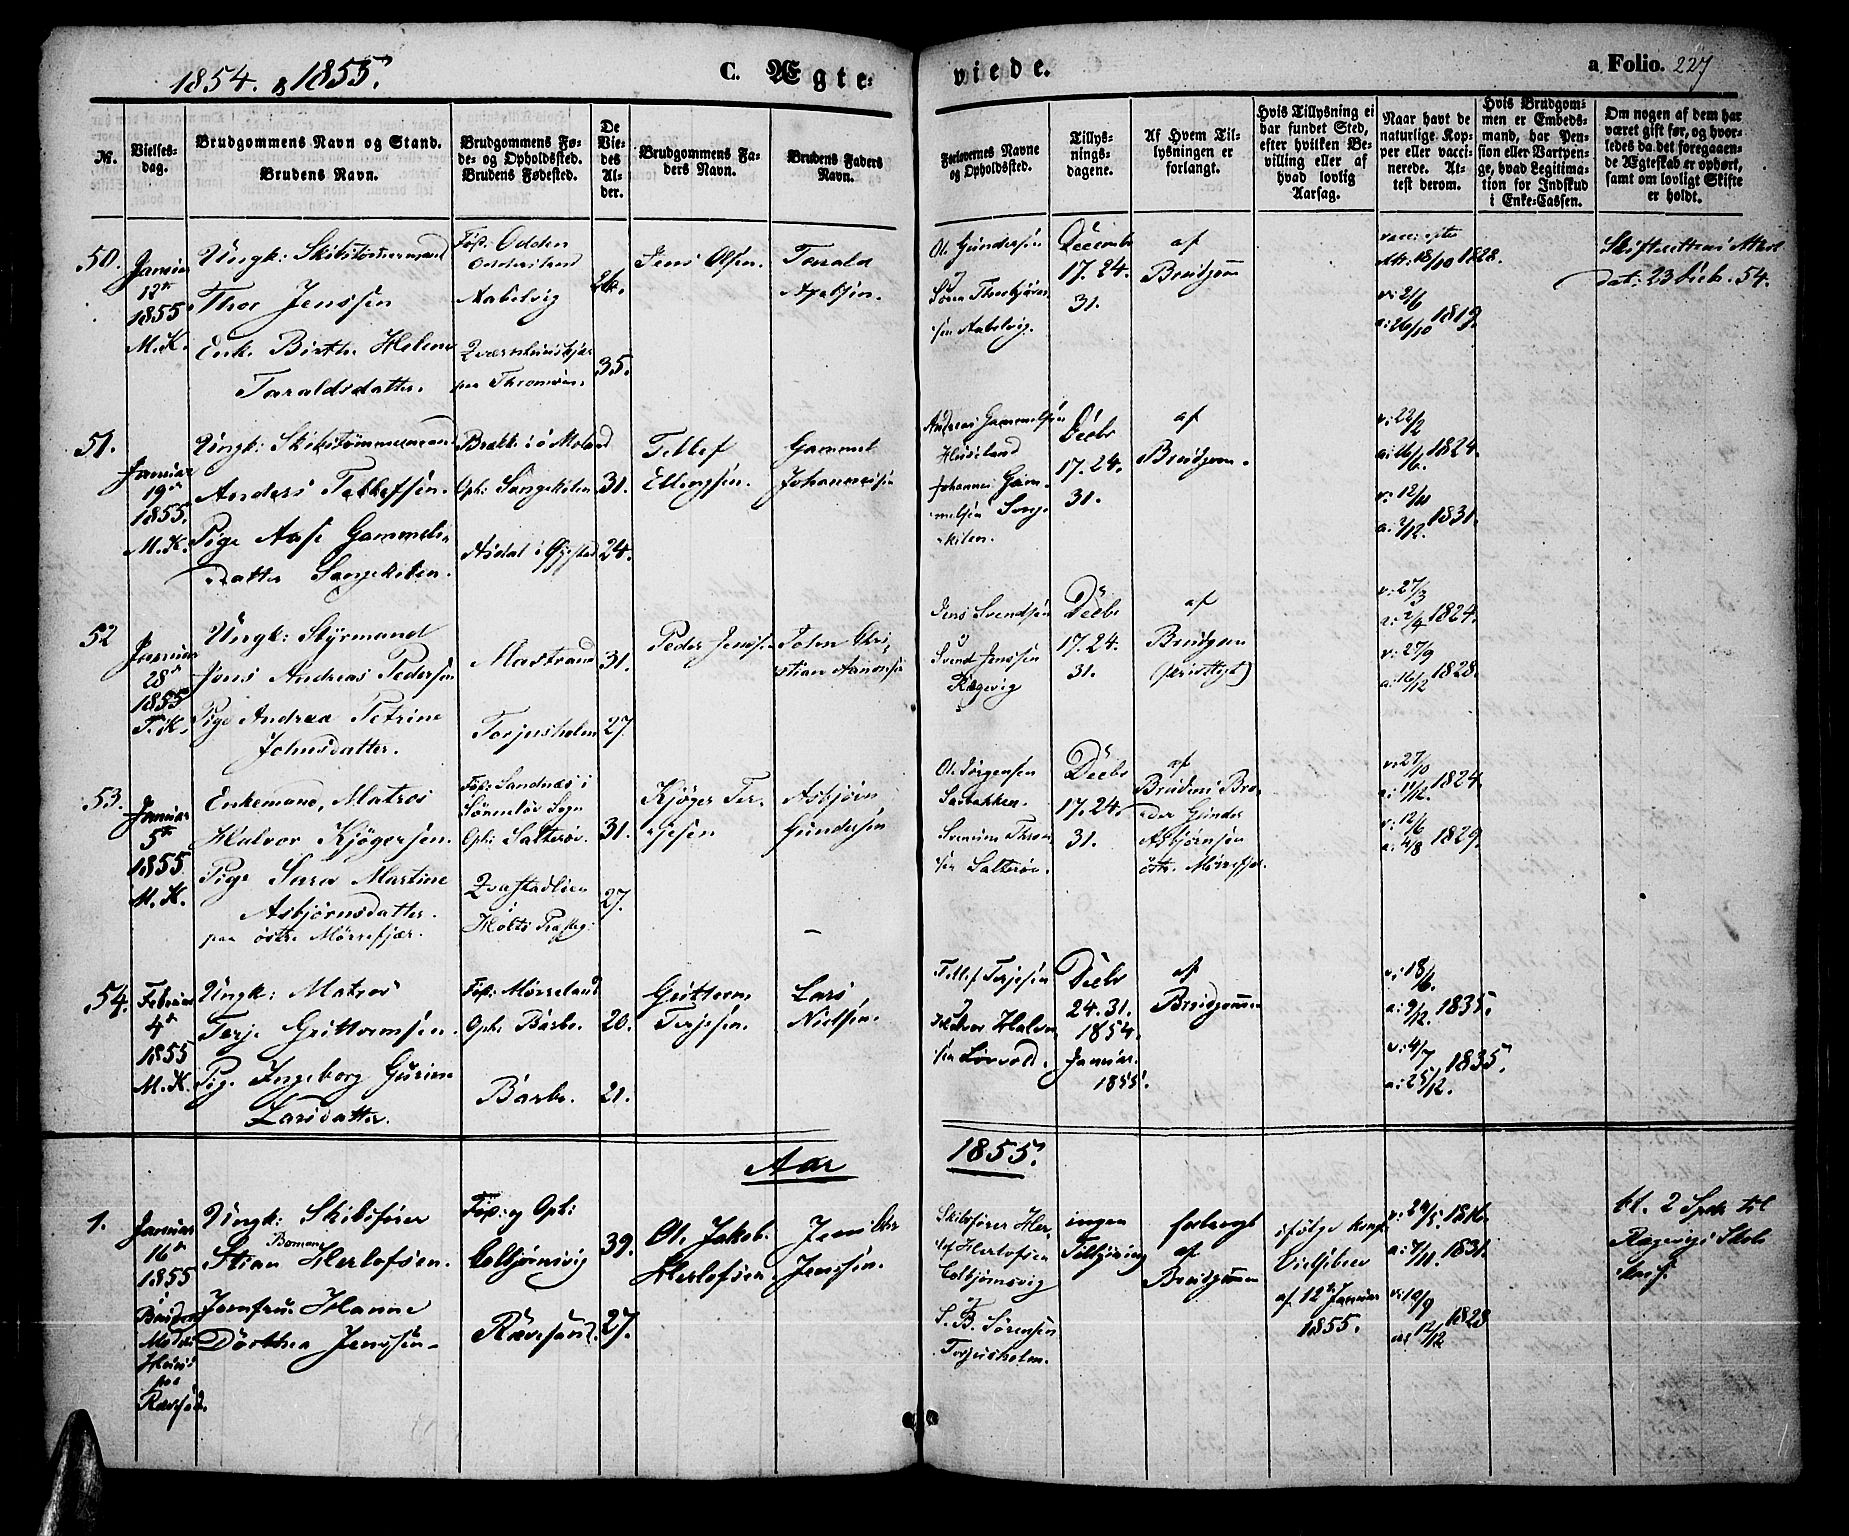 1854. & 1855.
C. Ægte-
viede.
a Folio. 227
No.
Vielses-
dag.
Brudgommens Navn og Stand.
Brudens Navn.
Brudgommens Fø-
de- og Opholdssted.
Brudens Fødested.
De
Vie-
des
Al-
der.
Brudgommens Fa-
ders Navn.
Brudens Faders
Navn.
Forlovernes Navne
og Opholdssted.
Tillys-
nings-
dagene.
Af Hvem Til-
lysningen er
forlangt.
Hvis Tillysning ei
har fundet Sted,
efter hvilken Be-
villing eller af
hvad lovlig
Aarsag.
Naar havt de
naturlige Kop-
per eller vacci-
nerede. At-
test derom.
Hvis Brudgom-
men er Embeds-
mand, har Pen-
sion eller Vartpen-
ge, hvad Legitima-
tion for Indskud
i Enke-Cassen.
Om nogen af dem har
været gift før, og hvor-
ledes da det foregaaen-
de Ægteskab er ophørt,
samt om lovligt Skifte
er holdt.
50.
Januar
12te
1855
M.K.
Ungk: Skibstømmermand
Thor Jenssen
Enke Birthe Helene
Taraldsdatter.
Fød: Odden
Aabelvig
paa Thromøen.
26.
35.
Jens Olsen.
Tarald
Axelsen.
Ol. Gundersen
Søren Thorbjørn-
sen Aabelvig.
Decembr
17. 24.
31.
af
Brudgom
18/10 1828.
v: 2/6
a: 26/10 1819.
Skifterettens Attest
dat: 23 Decb. 54.
51.
Januar
19de
1855.
M.K.
Ungk: Skibstømmermand
Anders Tellefsen.
Pige Aase Gammels-
datter Songekilen.
Brække i ø Moland
Oph: Songekilen
Asdal i Øyestad
31.
24.
Tellef
Ellingsen.
Gammel
Johannessen
Andreas Gammelsen
Huseland
Johannes Gam-
melsen Song-
ekilen.
Decbr
17. 24.
31.
af
Brudgom.
v: 22/2
a: 16/6 1824.
v: 12/11
a: 2/12 1831.
52
Januar
28de
1855
T.K.
Ungk: Styrmand
Jens Andreas Pedersen
Pige Andrea Petrine
Johnsdatter.
Marstrand
Torjusholm
31.
27.
Peder Jenssen
John Chri-
stian Aanonsen
Jens Svendsen
Svend Jenssen
Rægevig
Decbr
17. 24.
31.
af
Brudgom
(skriftligt)
v: 27/3
a: 2/4 1824.
v: 27/9
a: 16/12 1828.
53.
Januar
5te
1855.
M.K.
Enkemand, Matros
Halvor Kjøgersen.
Pige Sara Martine
Asbjørnsdatter.
paa østre Mørrefjær.
Fød: Sandnæs i
Sømmeløs Sogn
Oph: Salterøe.
Qvastadlien
i
Holts Præsteg:
31.
27.
Kjøger Ter-
jesen
Asbjørn
Gundersen
Ole Jørgensen
Saebakken.
Salterøe.
Decbr
17. 24.
31.
af
Brudens Bro-
der Gunder
Asbjørnsen
østre Mørrefjær
v: 27/10
1824.
v: 12/6
a: 4/8 1829.
54.
Februar
4de
1855
M.K.
Ungk: Matros
Terje Guttormsen.
Pige Ingeborg Gurine
Larsdatter.
Fød: Mørreland
Oph: Barbo.
Barbo.
20.
21.
Guttorm
Terjesen.
Lars
Nielsen.
Tellef Terjesen
Halvor-
sen Løvold.
Decbr
24. 31.
1854.
Januar.
1855.
af
Brudgommen
v: 18/6.
a: 9/12. 1835.
v: 4/7
a: 25/12. 1835.
Aar
1855.
1.
Januar
16de
1855
i
Brudens
Moders
Huus
paa
Rævesand.
Ungk: Skibsfører
Boman
Stian Herlofsen.
Jomfrue Hanne
Dorthea Jenssen.
Fød: og Oph:
Colbjørnsvig
Rævesand.
39.
27.
Ole Jakob
Herlofsen
Jens Chr
Jenssen.
Skibsfører Her-
lof Herlofsen
Colbjørnsvig
S. B. Sørensen
Torjusholm.
ingen
Tillysning
forlangt
af
Brudgommen
ifølge kongl
Vielsebrev
af 12te Januar
1855.
1816.
1831.
v: 10/9
12/12 1828
bt. 2 Spdr. til
Rægevigs Skole
kasse.